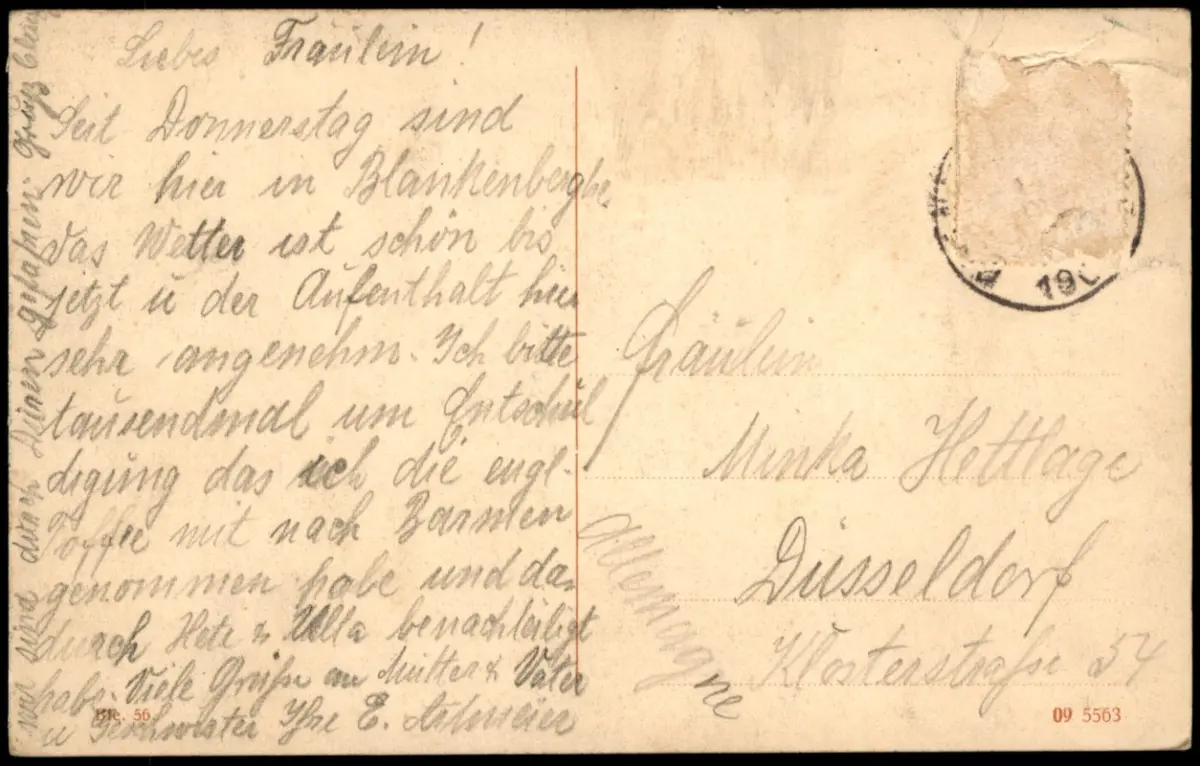 Liebes Fräulein!
Seit Donnerstag sind
wir hier in Blankenberghe,
das Wetter ist schön bis
jetzt u der Aufenthalt hier
sehr angenehm. Ich bitte
tausendmal um Entschul
digung das ich die engl.
Toffee mit nach Barmen
genommen habe und da-
durch Hete & Ulla benachteiligt
habe. Viele Grüße an Mutter & Vater
u Geschwister Ihre E.
wir sind durch Dünen gefahren.
Fräulein
Minka Hettlage
Düsseldorf
Klosterstraße 54
Allemagne
190
Ble. 56.
09 5563